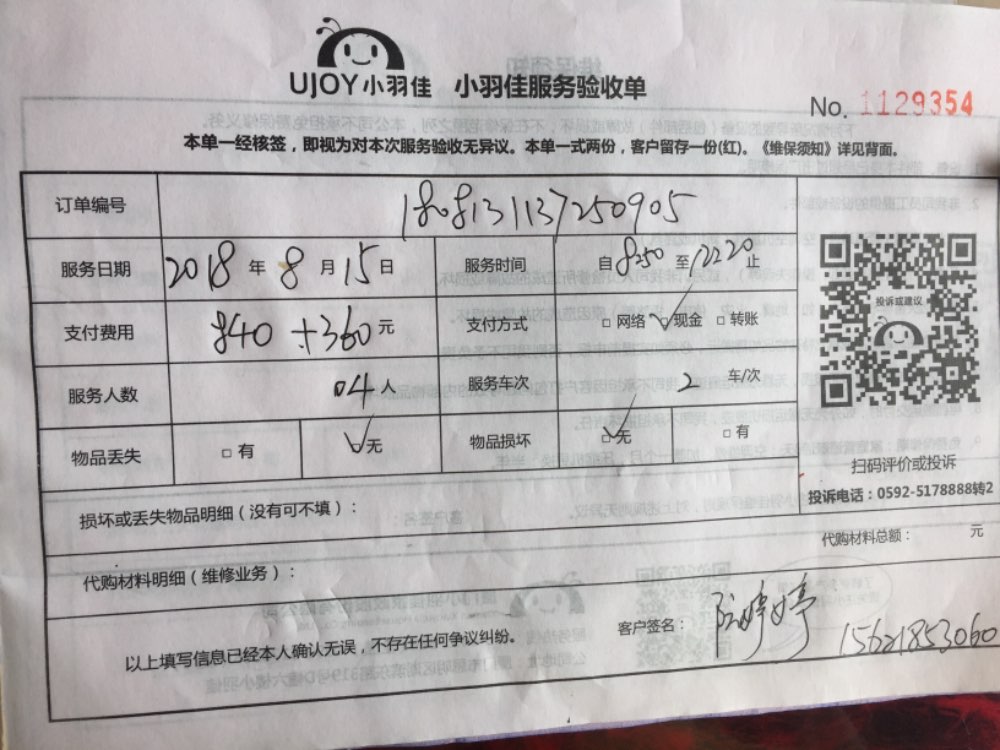 UJOY小羽佳 小羽佳服务验收单
No. 1129354
本单一经核签，即视为对本次服务验收无异议。本单一式两份，客户留存一份(红)。《维保须知》详见背面。
订单编号 1808131137250905
服务日期 2018 年 8 月 15 日 服务时间 自 8250 至 12220 止
支付费用 840 + 360 元 支付方式 □ 网络 ☑ 现金 □ 转账
服务人数 04 人 服务车次 2 车/次
物品丢失 □ 有 ☑ 无 物品损坏 ☑ 无 □ 有
投诉或建议
扫码评价或投诉
投诉电话：0592-5178888转2
损坏或丢失物品明细（没有可不填）：
代购材料总额： 元
代购材料明细（维修业务）：
以上填写信息已经本人确认无误，不存在任何争议纠纷。
客户签名： 阮婷婷 15621853060